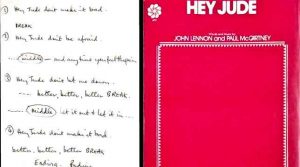 ① Hey Jude don't make it bad.
BREAK
② Hey Jude don't be afraid
middle — and any time you feel the pain
③ Hey Jude don't let me down
better, better, better BREAK.
middle Let it out & let it in
④ Hey Jude don't make it bad
better, better, better BREAK
Ending.
HEY JUDE
Words and Music by
JOHN LENNON and PAUL McCARTNEY